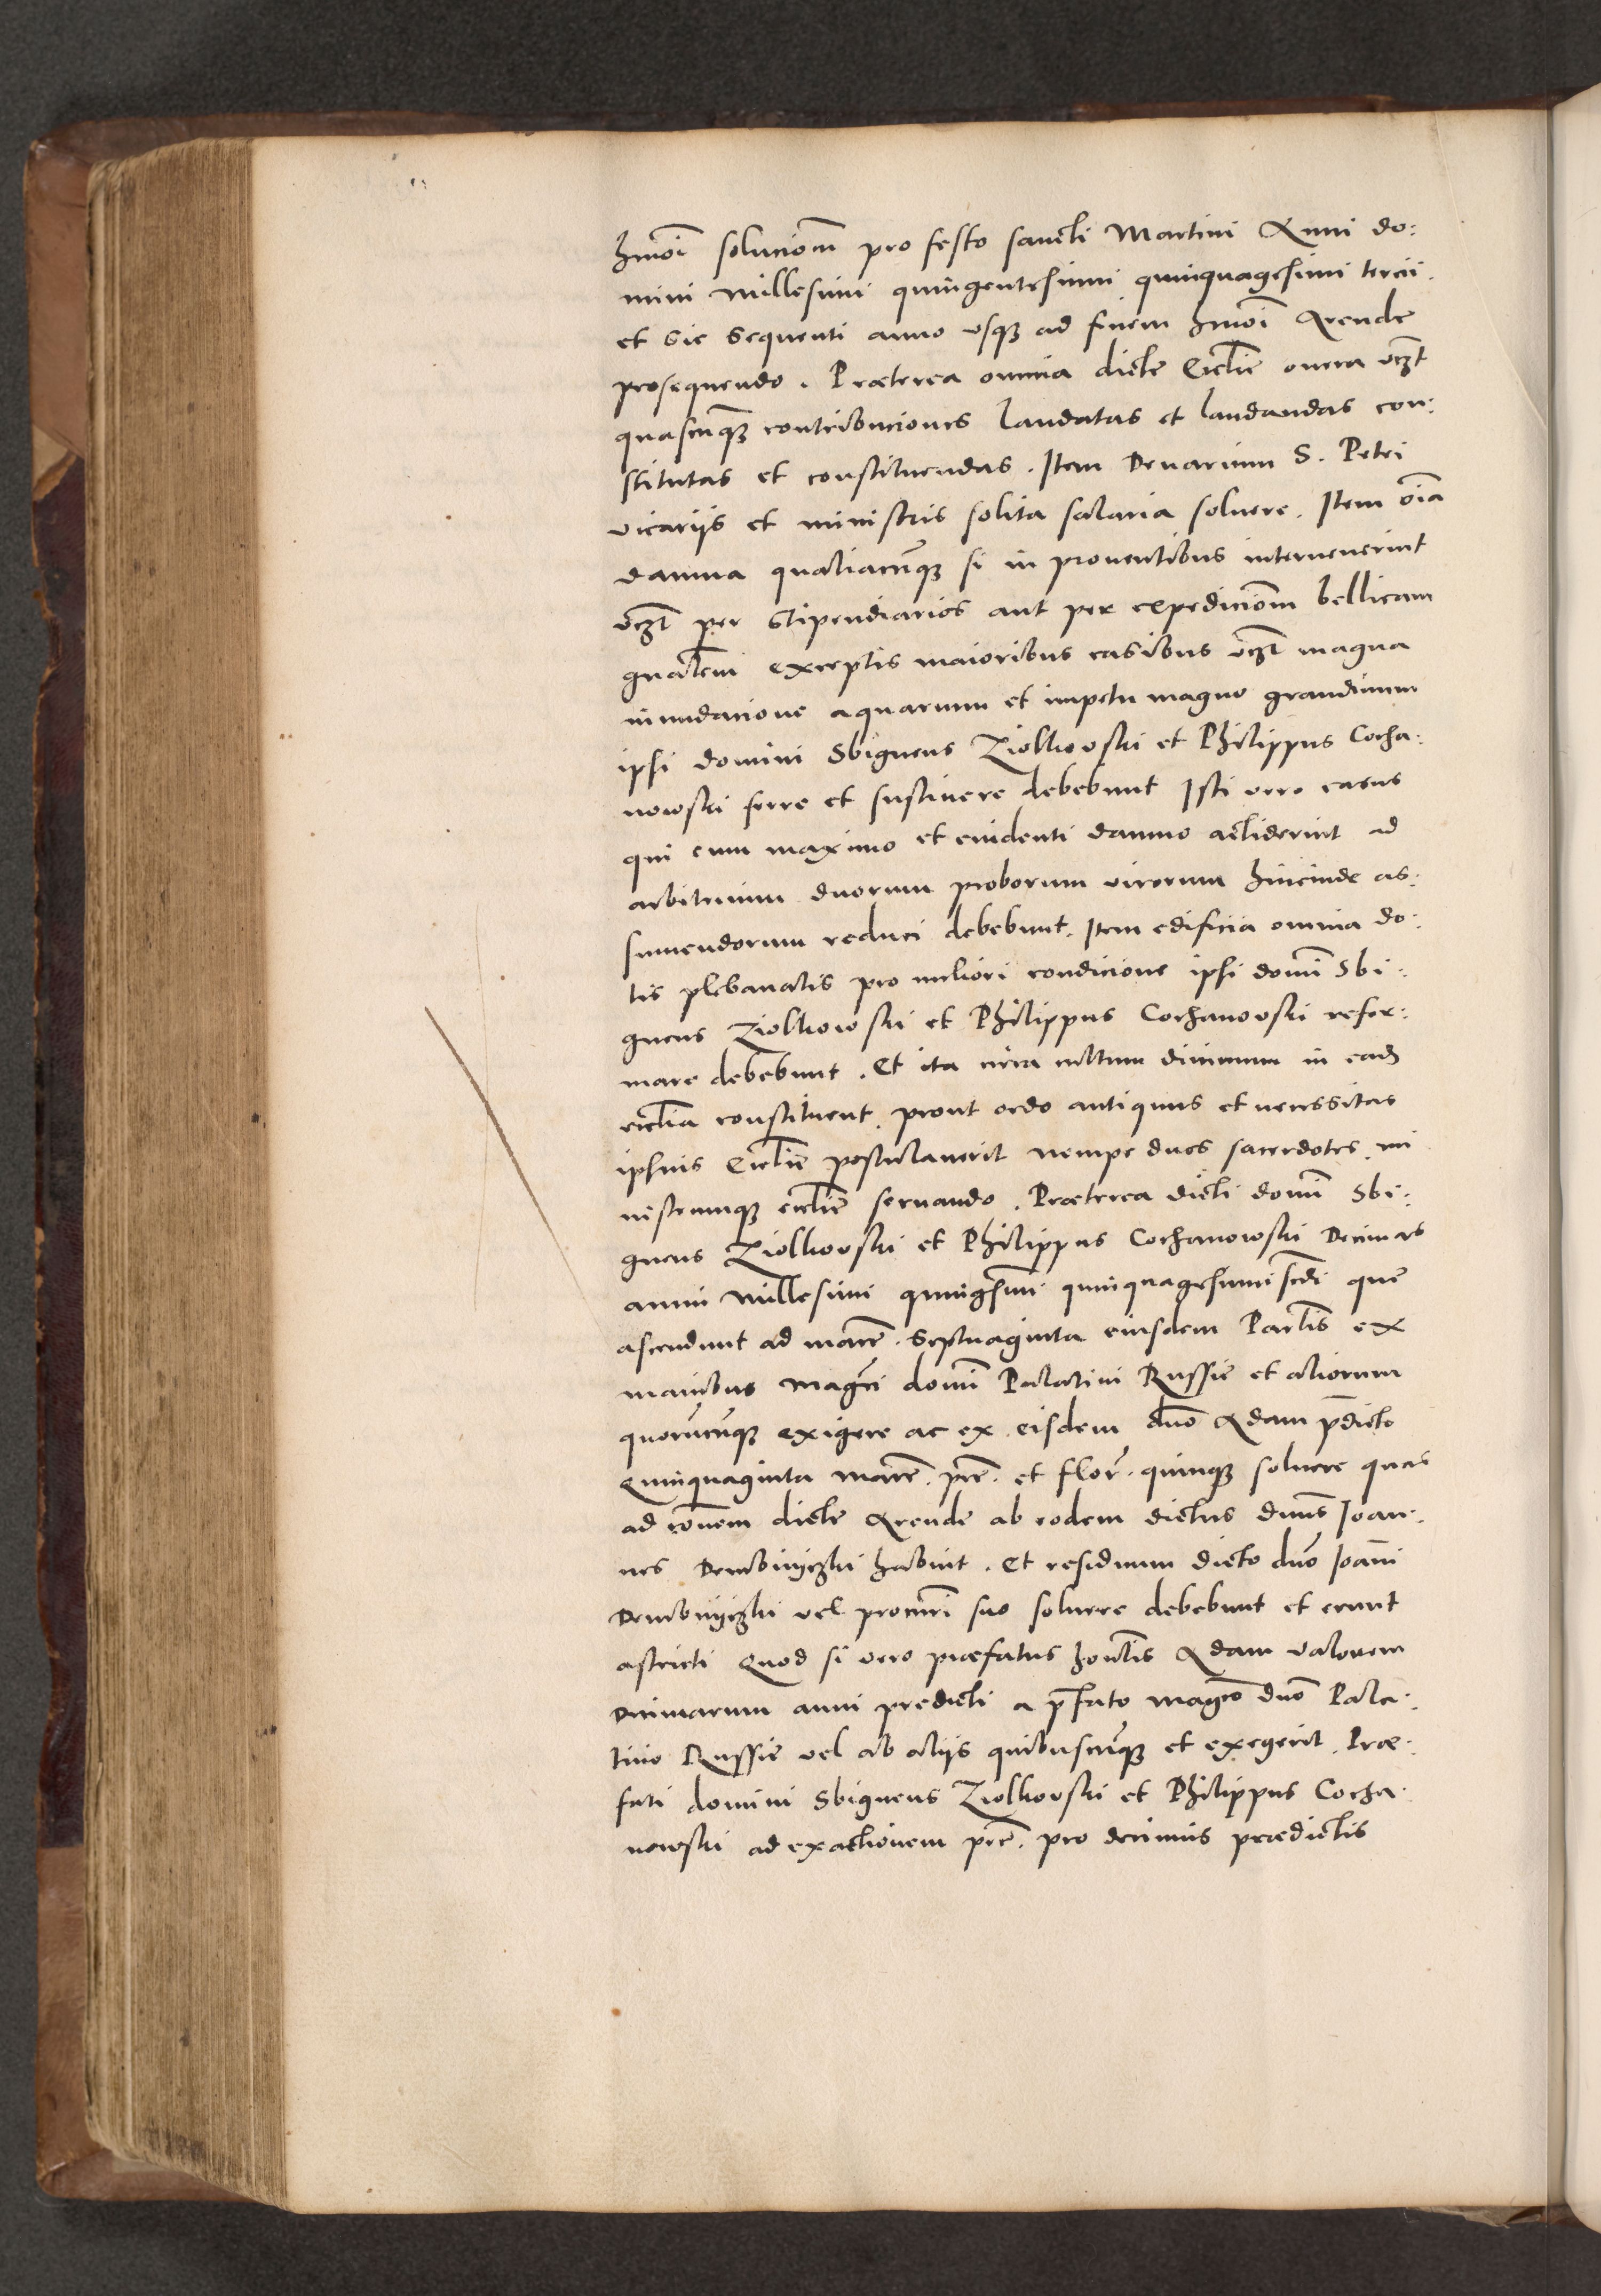 hmoi solucionem pro festo sancti Martini Anni do:
mini Millesimi quingentesimi quinquagesimi tercii.
et sic sequenti anno usq ad finem hmoi Arende
prosequendo. Præterea omnia dicte Ecclie onera vczt
quascunq contribuciones laudatas et laudandas con:
stitutas et constituendas. Item Denarium S. Petri
vicariis et ministris solita salaria soluere. Item oia
damna qualiacunq si in prouentibus interuenerint
vczt per Stipendiarios aut per expedicionem bellicam
gnalem exceptis maioribus casibus vczt magna
inundacione aquarum et impetu magno grandinum
ipsi domini Sbigneus Ziolkovski et Philippus Cocha:
nowski ferre et sustinere debebunt Isti vero casus
qui cum maximo et euidenti damno acciderint ad
arbitrium duorum proborum virorum hincinde as:
sumendorum reduci debebunt. Item edificia omnia do:
tis plebanalis pro meliori condicione ipsi domi Sbi:
gneus Ziolkowski et Philippus Cochanovski refor:
mare debebunt. Et ita circa cultum diuinum in eadem
ecclia constituent prout ordo antiquus et necessitas
ipsius Ecclie postulauerit nempe duos sacerdotes mi
nistrumq ecclie seruando. Præterea dicti domi Sbi:
gneus Ziolkovski et Philippus Cochanowski Decimas
anni Millesimi quingsimi quinquagesimi scdi que
ascendunt ad marc. Septuaginta eiusdem Partis ex
manibus Magci domi Palatini Russie et aliorum
quorucunq exigere ac ex eisdem dno Adam pdicto
Quinquaginta marc. pec. et flor. quinq soluere quas
ad ronem dicte Arende ab eodem dictus dnus Joan:
nes Dembinyczki habuit. Et residuum dicto dno Joanni
Dembinyczki vel procuri suo soluere debebunt et erunt
astricti Quod si vero præfatus honlis Adam valorem
Decimarum anni predicti a pfato magco dno Pala:
tino Russie vel ab aliis quibuscunq et exegerit. Præ:
fati domini Sbigneus Ziolkovski et Philippus Cocha
nowski ad exactionem pec. pro decimis prædictis